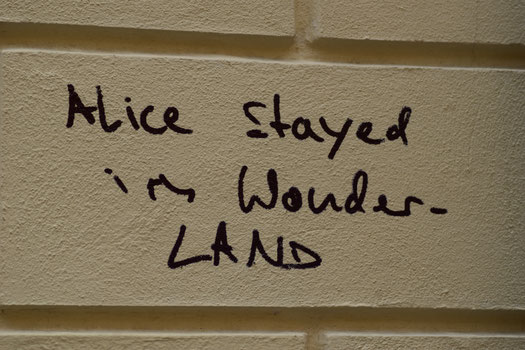 Alice Stayed
in Wonder-
LAND